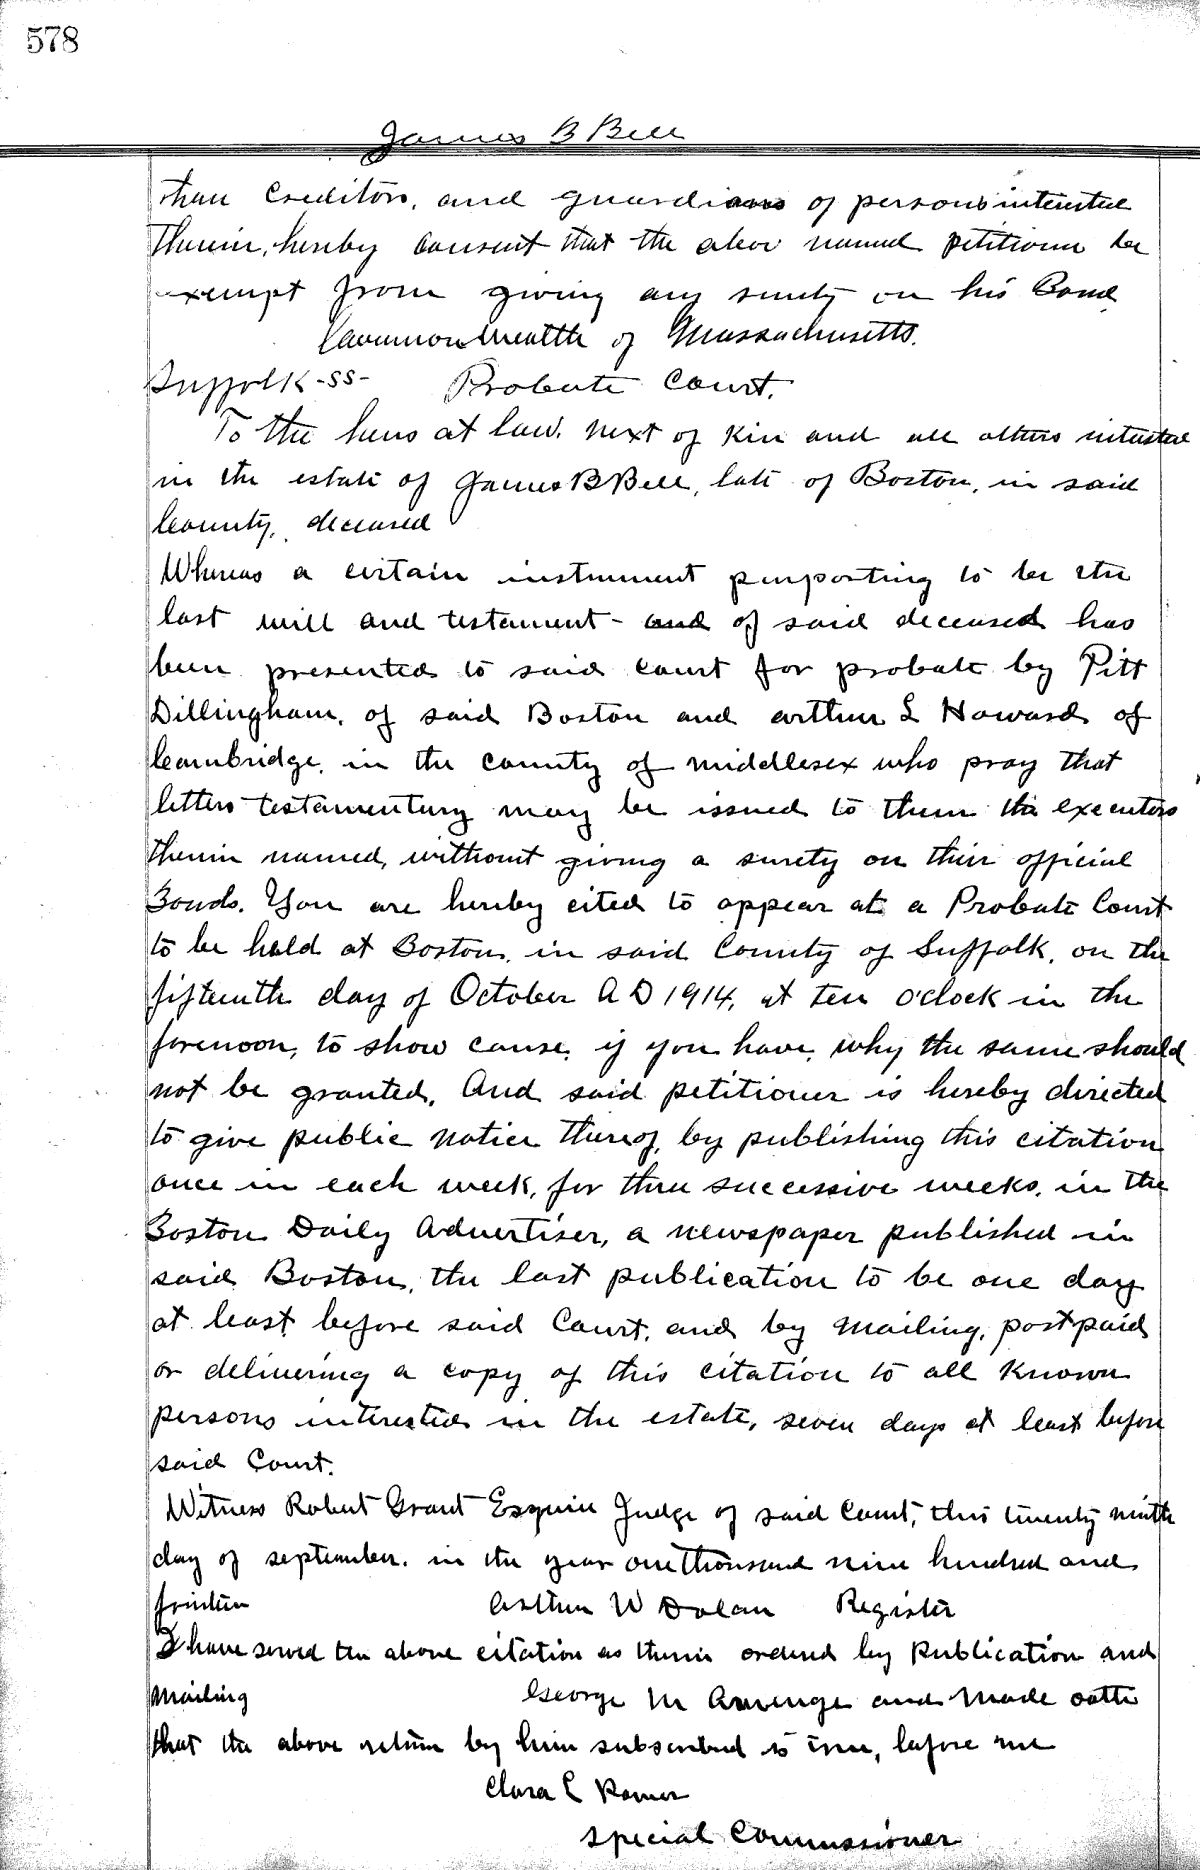 578
James B Bell
than Creditors, and guardians of persons interested
Therein, hereby consent that the above named petitioner be
exempt from giving any surety on his Bond
Commonwealth of Massachusetts.
Suffolk -SS- Probate Court.
To the heirs at law. next of Kin and all others interested
in the estate of James B Bell, late of Boston, in said
County, deceased
Whereas a certain instrument purporting to be the
last will and testament - and of said deceased has
been presented to said Court for probate by Pitt
Dillingham, of said Boston and Arthur L Howard of
Cambridge, in the County of Middlesex who pray that
letters testamentary may be issued to them the executors
therein named, without giving a surety on their official
Bonds. You are hereby cited to appear at a Probate Court
to be held at Boston, in said County of Suffolk, on the
fifteenth day of October A D 1914, at ten o'clock in the
forenoon, to show cause, if you have, why the same should
not be granted. And said petitioner is hereby directed
to give public notice thereof, by publishing this citation
once in each week, for three successive weeks, in the
Boston Daily Advertiser, a newspaper published in
said Boston, the last publication to be one day
at least before said Court, and by mailing, postpaid
or delivering a copy of this citation to all known
persons interested in the estate, seven days at least before
said Court.
Witness Robert Grant Esquire Judge of said Court, this twenty ninth
day of september. in the year one thousand nine hundred and
fourteen Arthur W Dolan Register
I have served the above citation as therein ordered by publication and
Mailing George M and Made oath
that the above return by him subscribed is true, before me
Clara L
Special Commissioner